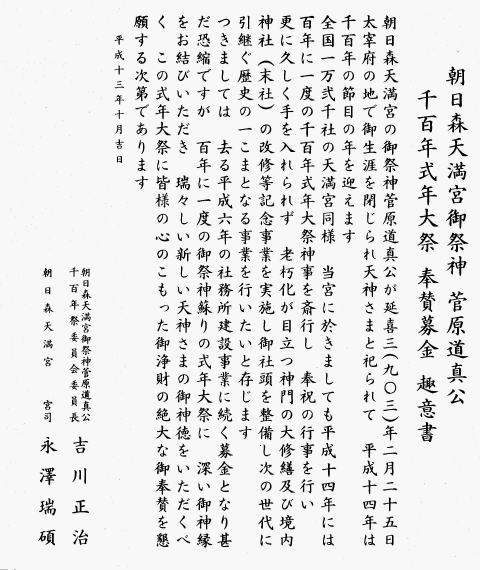 朝日森天満宮御祭神 菅原道真公
千百年式年大祭 奉賛募金 趣意書
朝日森天満宮の御祭神菅原道真公が延喜三(九〇三)年二月二十五日
太宰府の地で御生涯を閉じられ天神さまと祀られて 平成十四年は
千百年の節目の年を迎えます
全国一万弐千社の天満宮同様 当宮に於きましても平成十四年には
百年に一度の千百年式年大祭神事を斎行し 奉祝の行事を行い
更に久しく手を入れられず 老朽化が目立つ神門の大修繕及び境内
神社(末社)の改修等記念事業を実施し御社頭を整備し次の世代に
引継ぐ歴史の一こまとなる事業を行いたいと存じます
つきましては 去る平成六年の社務所建設事業に続く募金となり甚
だ恐縮ですが 百年に一度の御祭神蘇りの式年大祭に 深い御神縁
をお結びいただき 瑞々しい新しい天神さまの御神徳をいただくべ
く この式年大祭に皆様の心のこもった御浄財の絶大な御奉賛を懇
願する次第であります
平成十三年十月吉日
朝日森天満宮御祭神菅原道真公
千百年祭委員会委員長 吉川正治
朝日森天満宮 宮司 永澤瑞碩